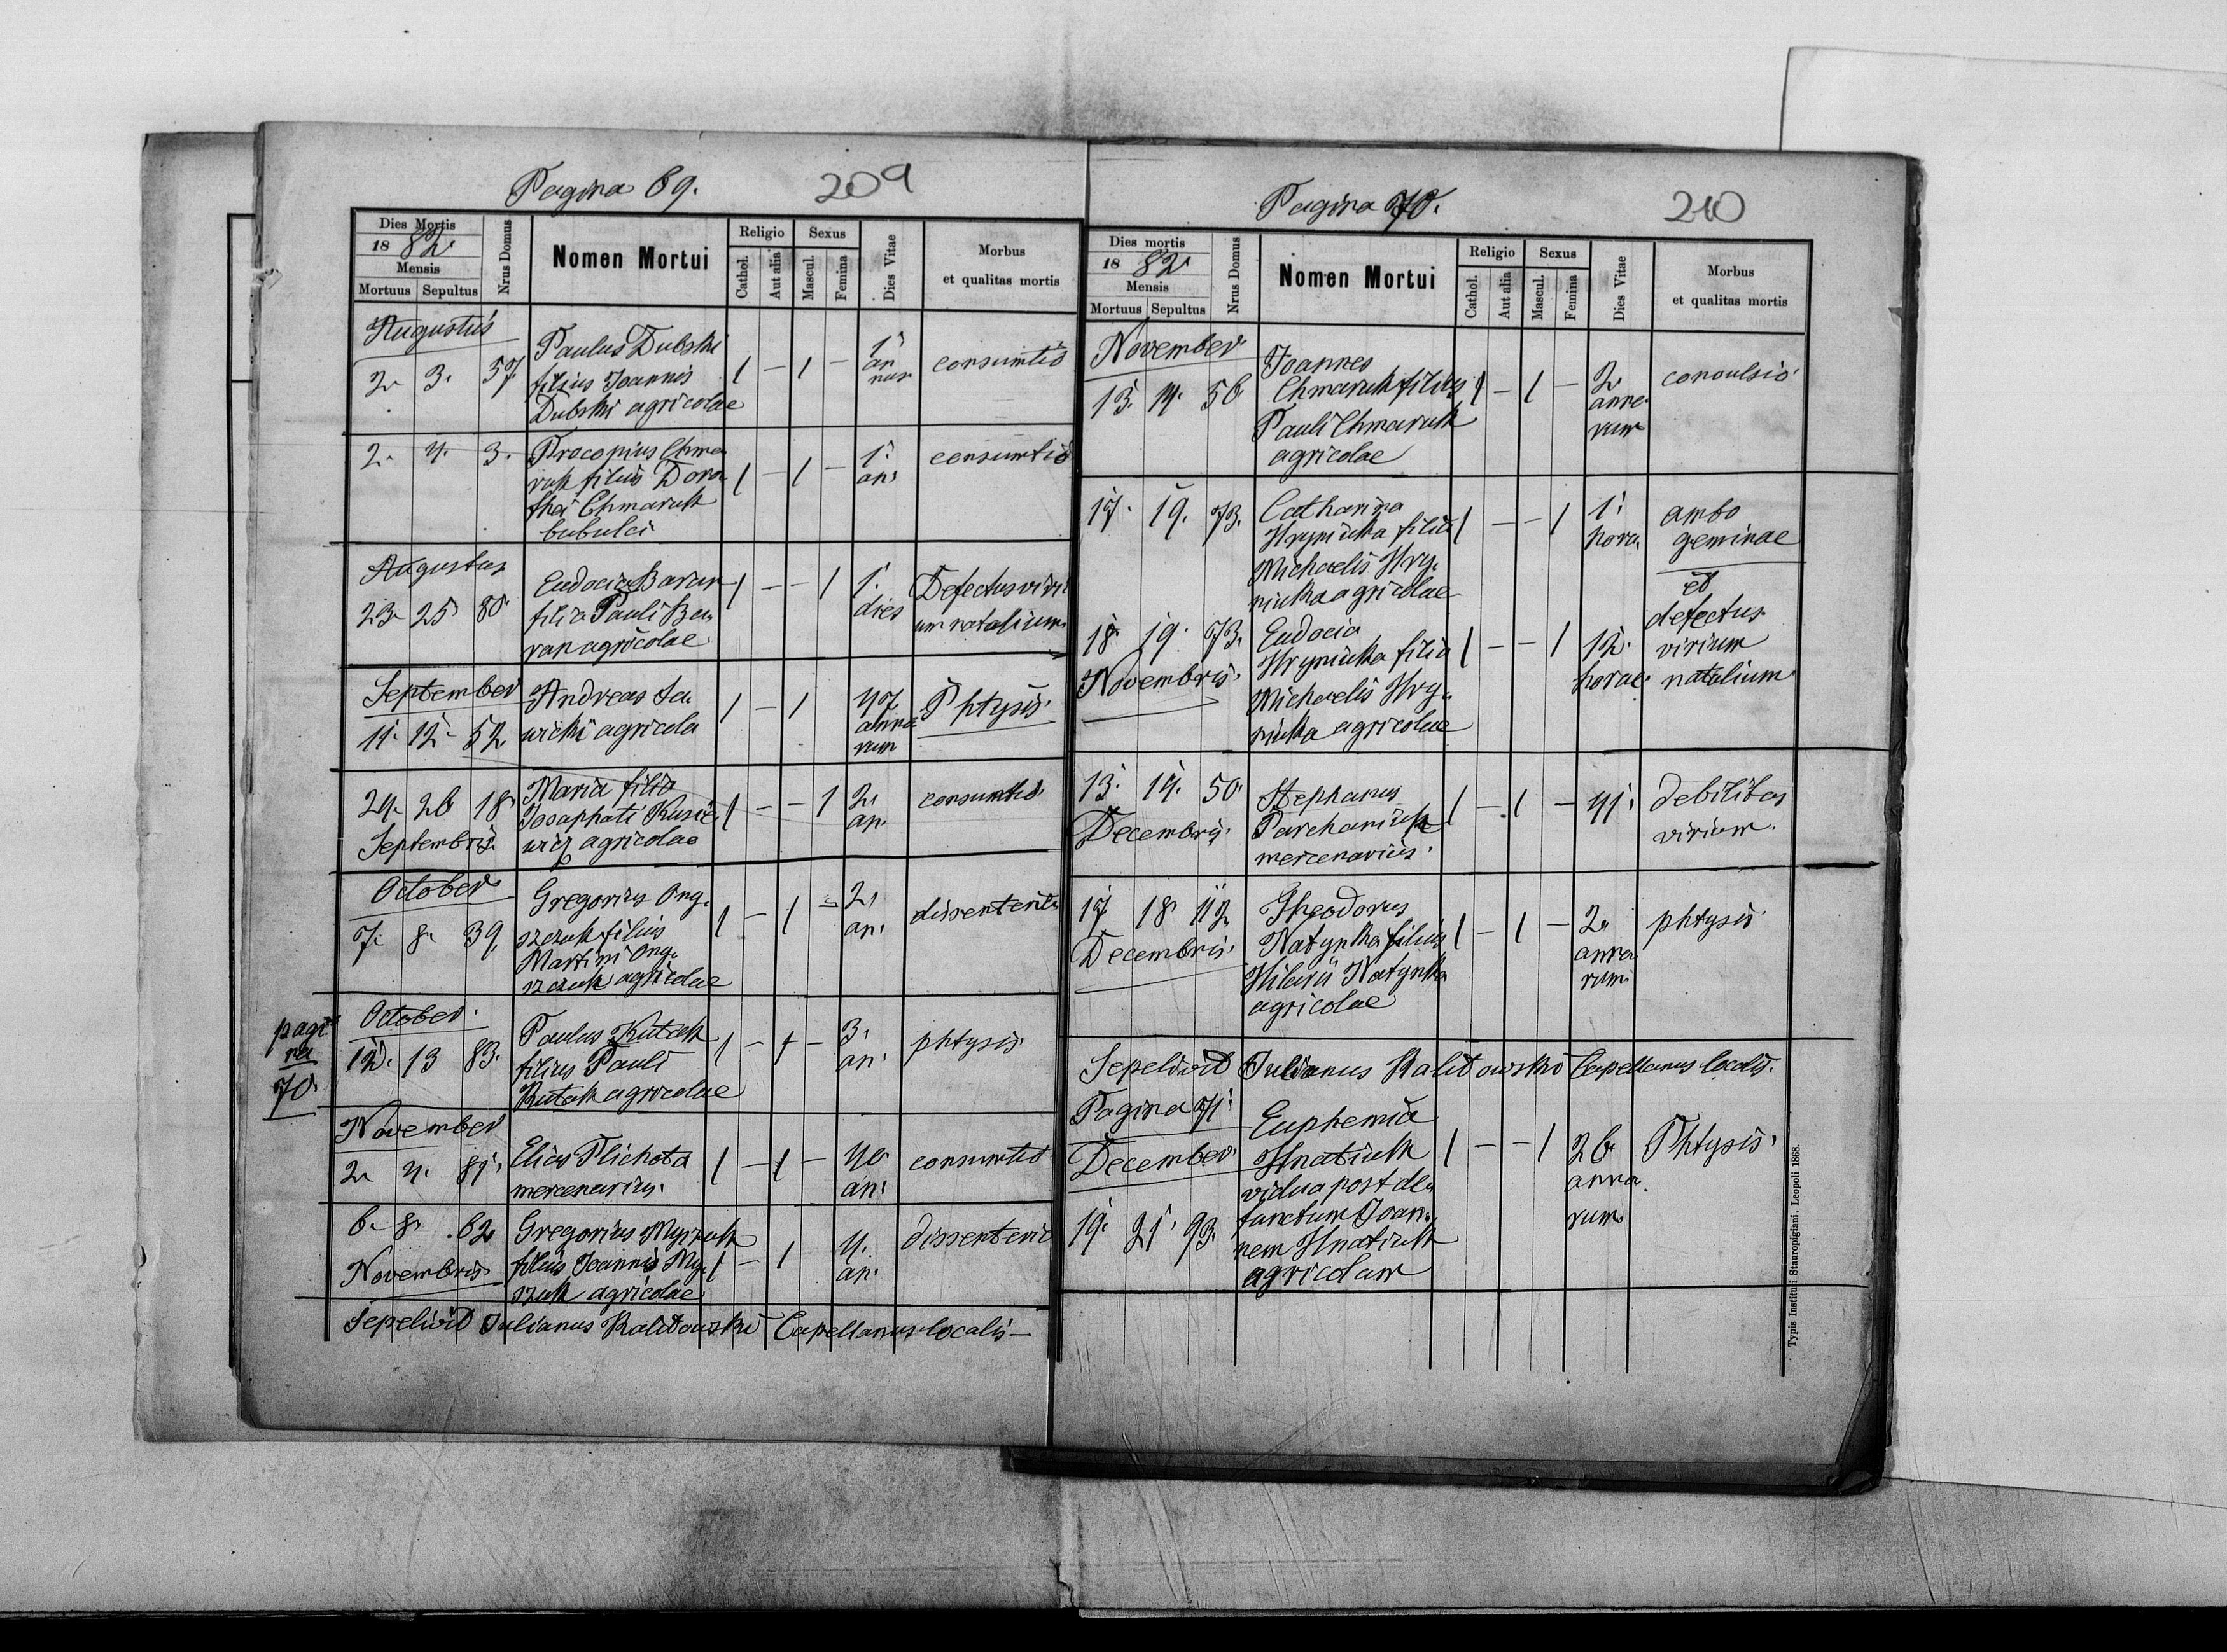 Pagina 69. 209
Dies Mortis
1882.
Mensis
Mortuus Sepultus
Nrus Domus
Nomen Mortui
Religio
Cathol.
Aut alia
Sexus
Mascul.
Femina
Dies Vitae
Morbus
et qualitas mortis
Augustus
2. 3. 57. Paulus Dubski 1 – 1 – 1. consumtio
filius Joannis an
Dubski agricolae nus
2. 4. 3. Procopius Chma 1 – 1 – 1. consumtio
ruk filius Doro an.
thei Chmaruk
bubulci
Augustus
23. 25. 80. Eudocia Baran 1 – – 1 1. Defectus viri
filia Pauli Ba dies um natalium
ran agricolae
September
11. 12. 52 Andreas Sa 1 – 1 47 Phtysis.
wicki agricola anno
rum
24. 26 18. Maria filia 1 – – 1 2. consumtio.
Septembris. Josaphati Kusie an.
wicz agricolae
October
7. 8. 39. Gregorius Ony 1 – 1 – 2. dissenteria
szczuk filius an.
Martini Ony
szczuk agricolae
pagi
na
70.
October.
12. 13 83. Paulus Kutak 1 – 1 – 3. phtysis.
filius Pauli an.
Kutak agricolae
November
2. 4. 81. Elias Plichota 1 – 1 – 40 consumtio
mercenarius. an.
6. 8. 62 Gregorius Myszuk 1 – 1 4. dissenteria
Novembris filius Joannis My an.
szuk agricolae
Sepelivit Julianus Kalitowski Capellanus localis –
Pagina 70. 210
Dies mortis
1882.
Mensis
Mortuus Sepultus
Nrus Domus
Nomen Mortui
Religio
Cathol.
Aut alia
Sexus
Mascul.
Femina
Dies Vitae
Morbus
et qualitas mortis
November
13. 14. 56 Joannes 1 – 1 – 2. convulsio.
Chmaruk filius anno
Pauli Chmaruk rum
agricolae
17. 19. 73. Catharina 1 – – 1 1. ambo
Hryniuka filia hora geminae
Michaelis Hry et
niuka agricolae defectus
18. 19. 73. Eudocia 1 – – 1 12. virium
Novembris. Hryniuka filia horae. natalium
Michaelis Hry
niuka agricolae
13. 14. 50. Stephanus 1 – 1 – 41. debilitas
Decembris. Parchaniuk virium.
mercenarius.
17. 18. Theodorus 1 – 1 – 2. phtysis.
Decembris. Natynka filius anno
Hilarii Natynka rum.
agricolae
Sepelivit Julianus Kalitowski Capellanus localis.
Pagina 71.
December Euphemia 1 – – 1 26 Phtysis.
Hnatiuk anno
vidua post de rum.
19. 21. 93. functum Joan
nem Hnatiuk
agricolam
Typis Instituti Stauropigiani. Leopoli 1868.